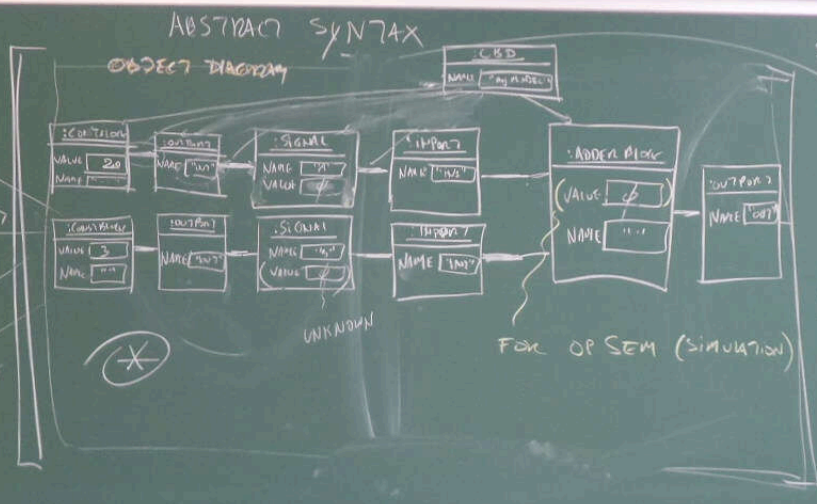 ABSTRACT SYNTAX
OBJECT DIAGRAM
:CBD
NAME
:CONSTBLOCK
VALUE 2.0
NAME
:OUTPORT
NAME "OUT"
:SIGNAL
NAME
VALUE ϕ
:INPORT
NAME
:ADDER BLOCK
(VALUE ϕ)
NAME " "
:OUTPORT
NAME "OUT"
:CONSTBLOCK
VALUE 3
NAME " "
:OUTPORT
NAME "OUT"
:SIGNAL
NAME
(VALUE ϕ)
:INPORT
NAME
UNKNOWN
FOR OP SEM (SIMULATION)
*